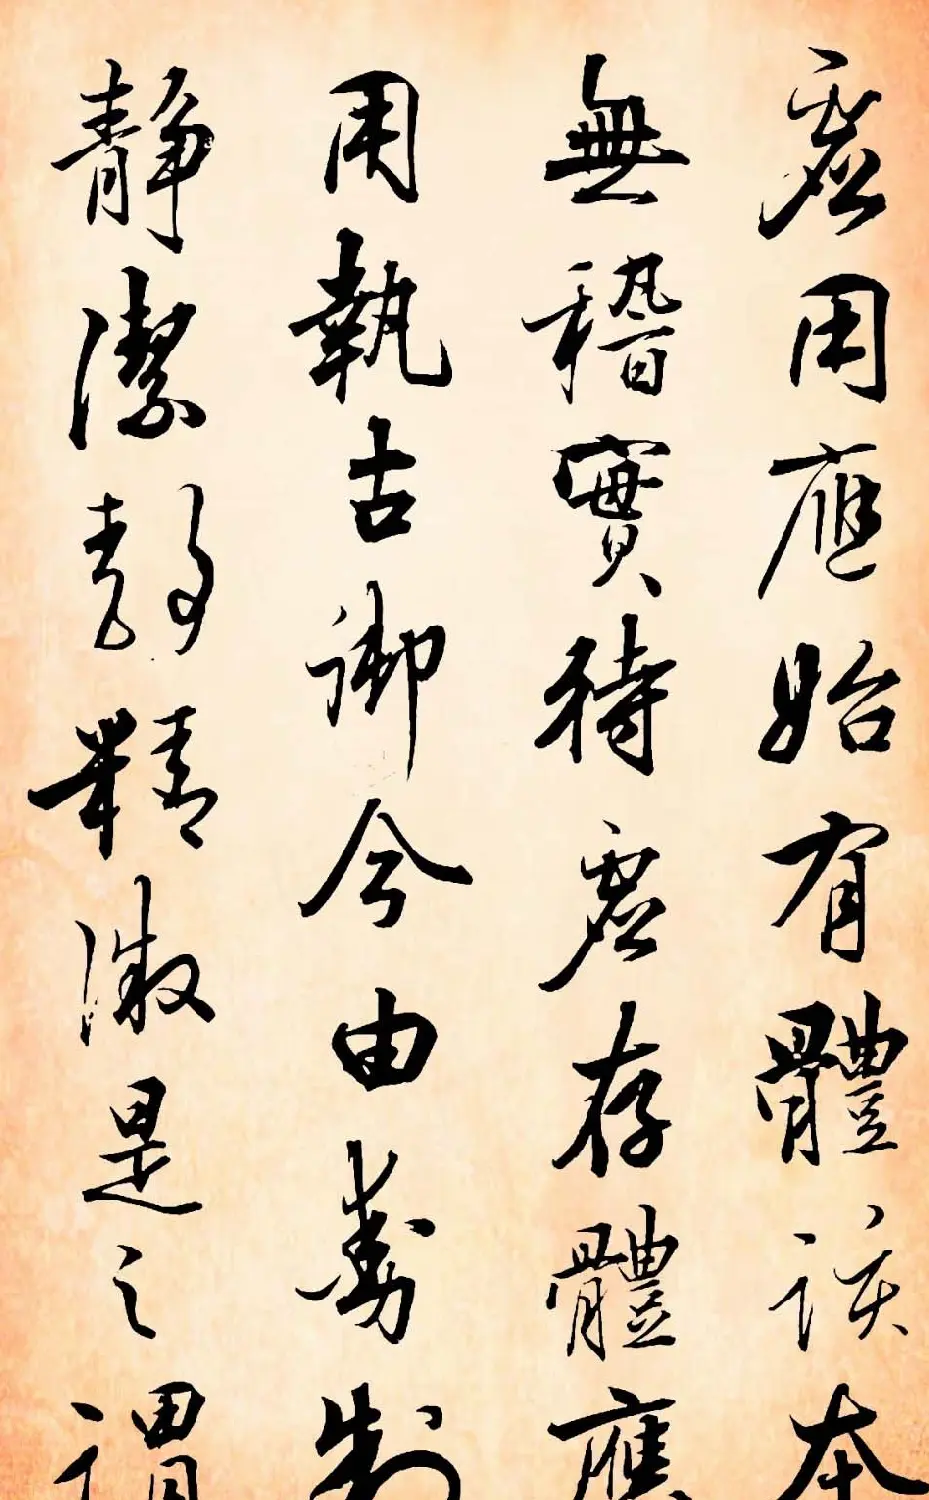 虛用應始有體該本
無稽實待虛存體應
用執古御今由動制
静潔静精微是之謂